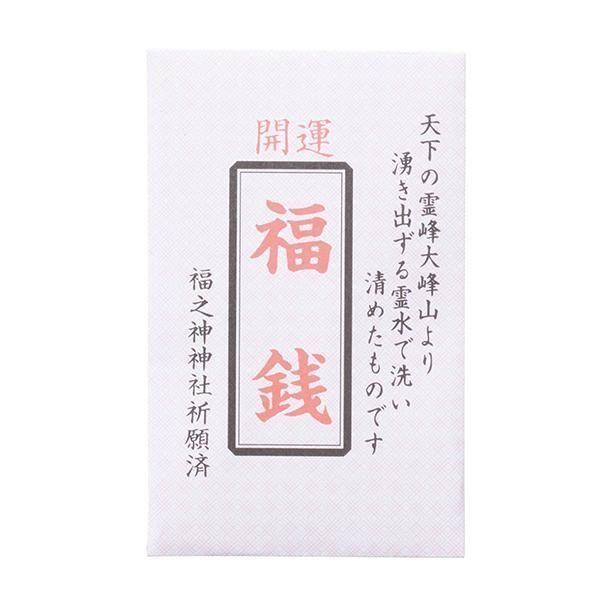 開運
福銭
天下の霊峰大峰山より
湧き出ずる霊水で洗い
清めたものです
福之神神社祈願済